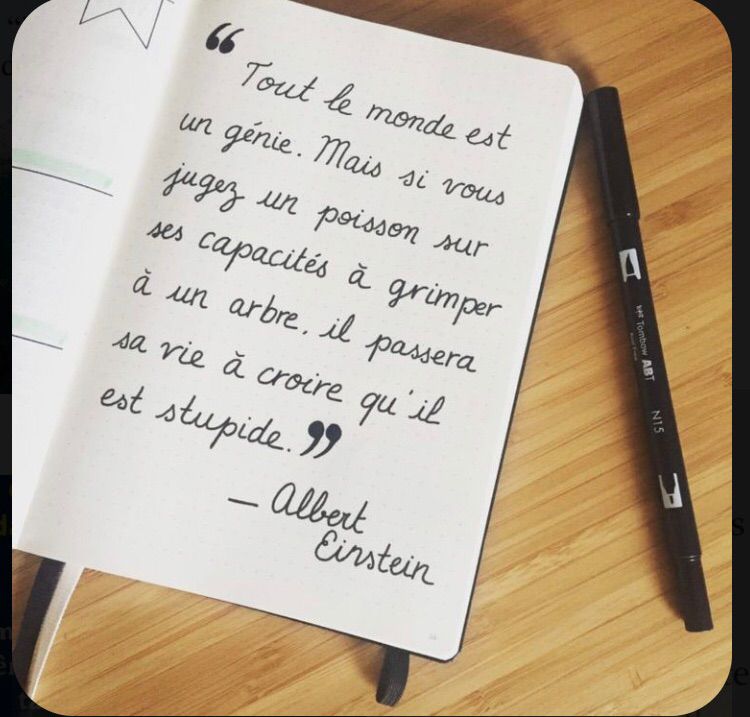 “
Tout le monde est
un génie. Mais si vous
jugez un poisson sur
ses capacités à grimper
à un arbre, il passera
sa vie à croire qu'il
est stupide.”
— Albert
Einstein
Tombow ABT
N15